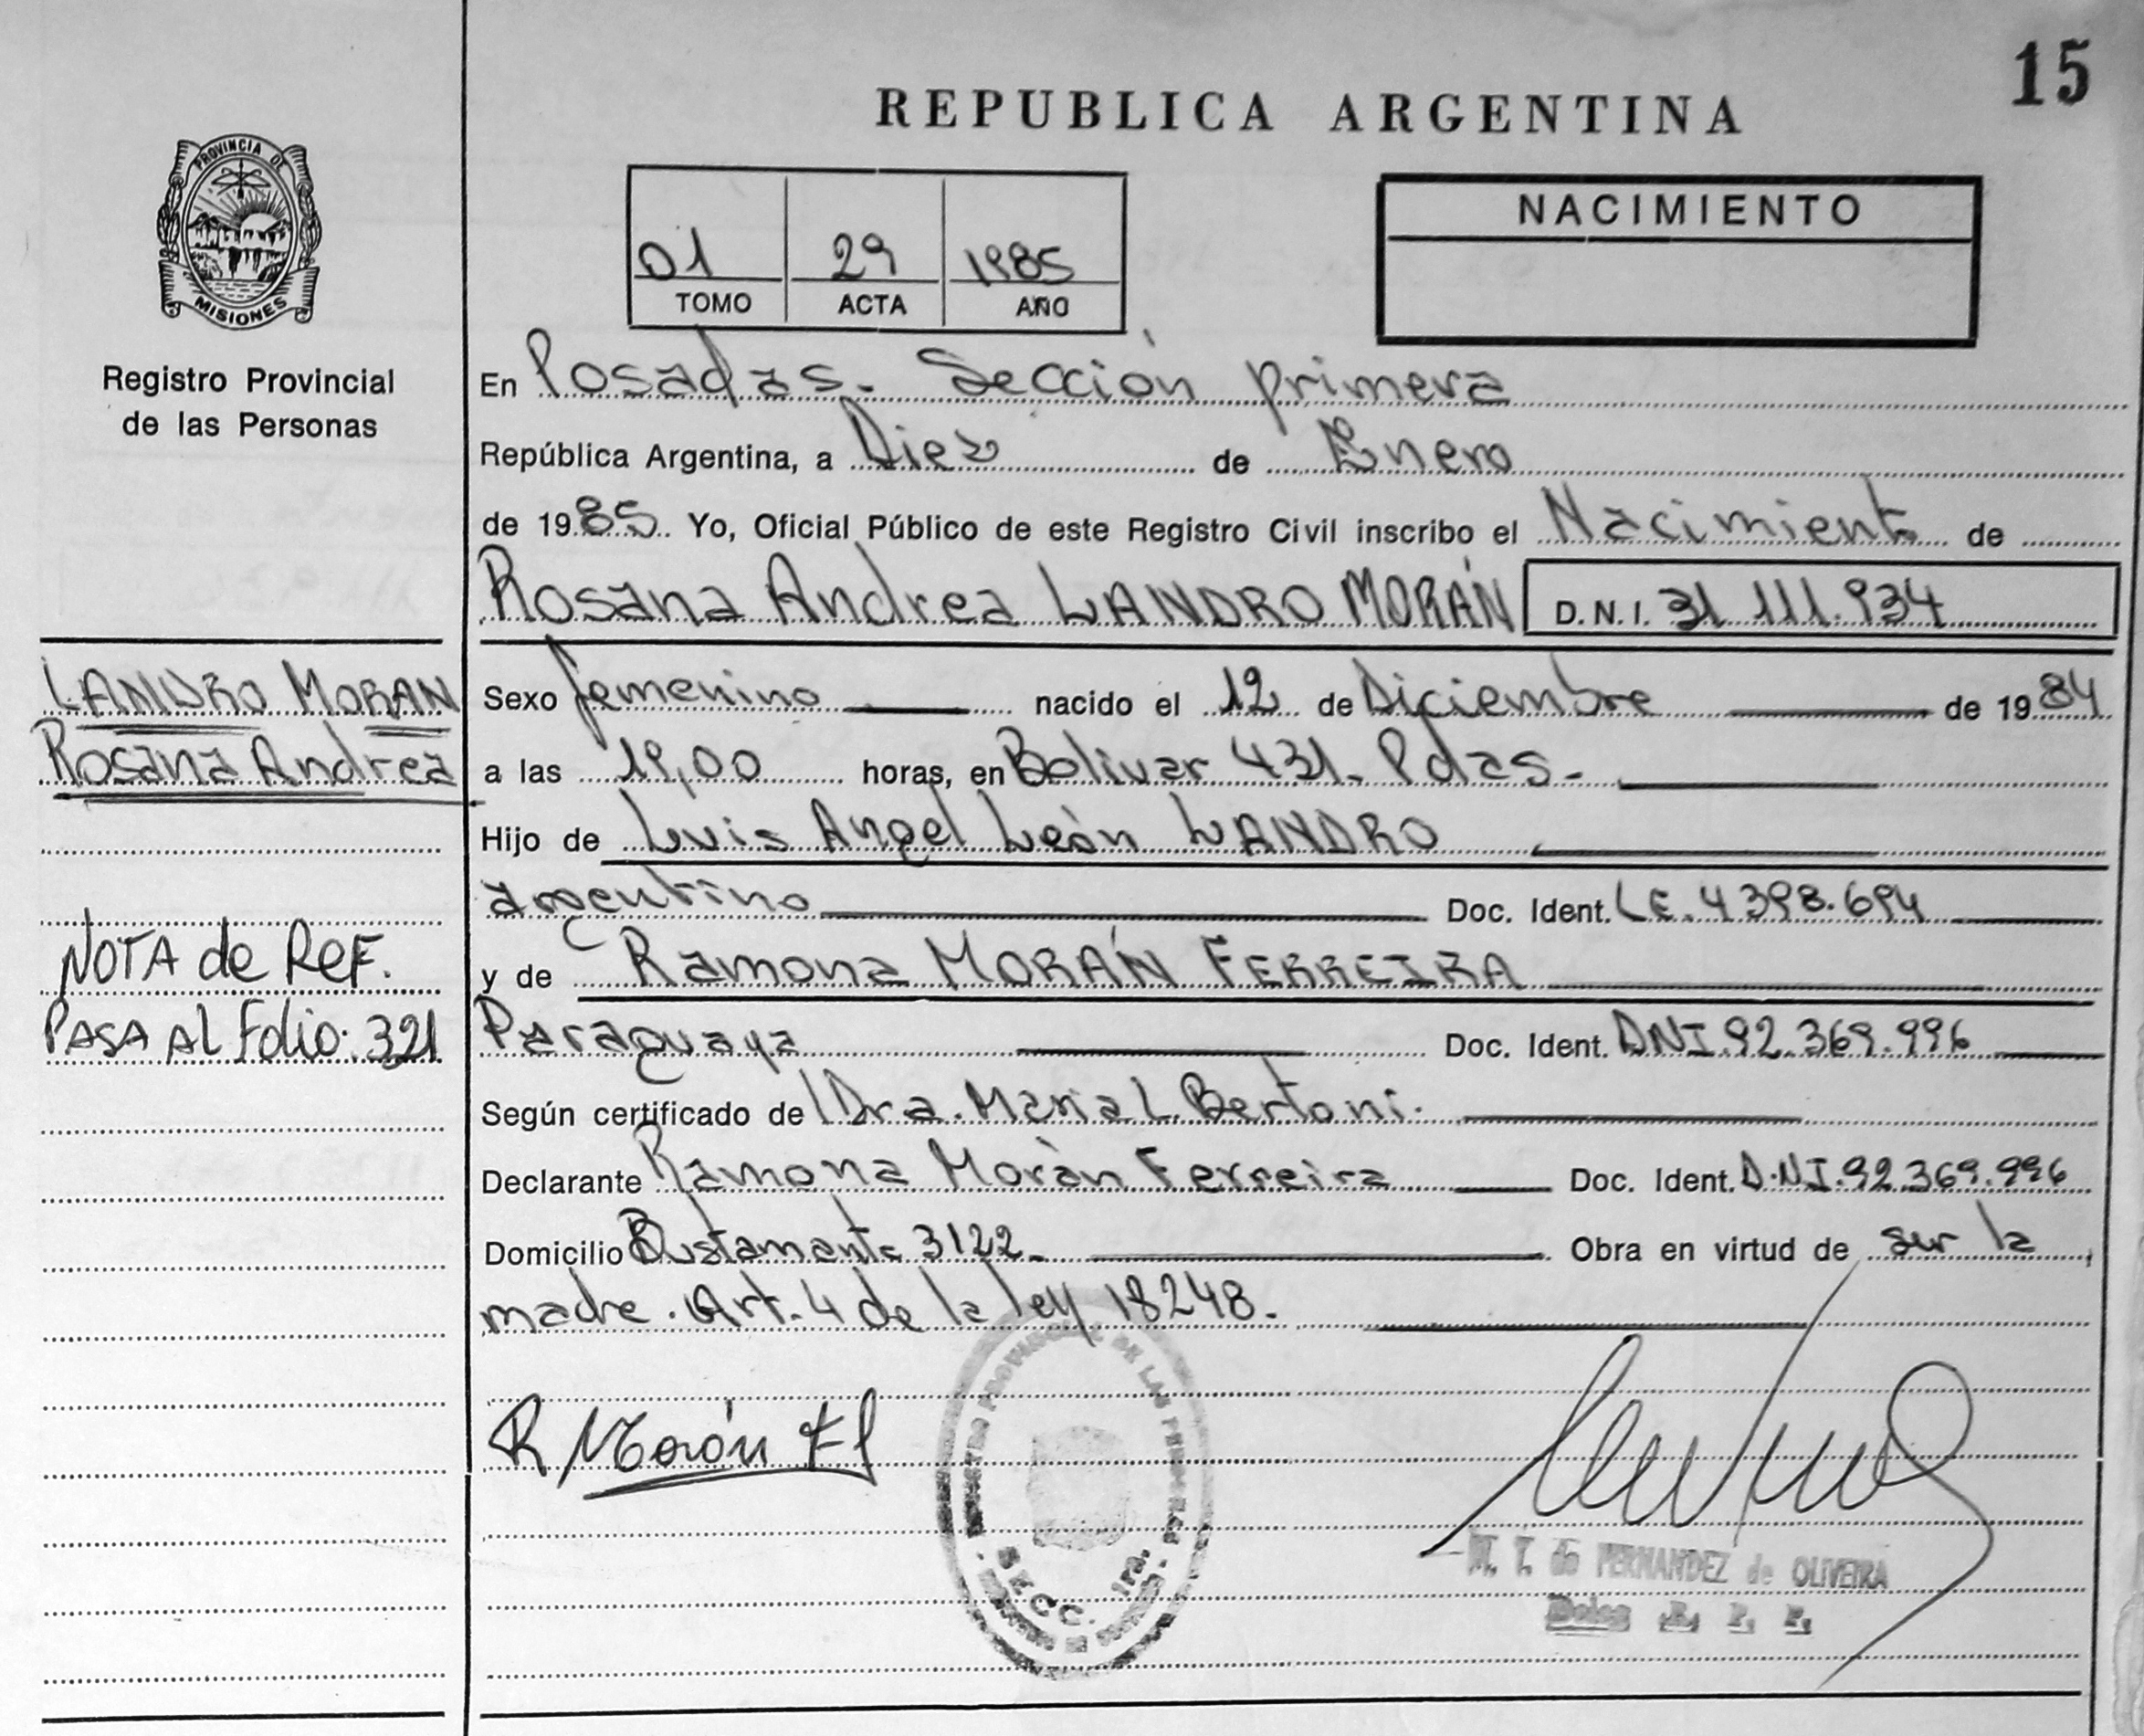 15
REPUBLICA ARGENTINA
PROVINCIA DE
MISIONES
Registro Provincial
de las Personas
01 29 1985
TOMO ACTA AÑO
NACIMIENTO
En Posadas. Sección primera
República Argentina, a Diez de Enero
de 1985. Yo, Oficial Público de este Registro Civil inscribo el Nacimiento de
Rosana Andrea LANDRO MORÁN D.N.I. 31.111.934
LANDRO MORAN
Rosana Andrea
Sexo femenino nacido el 12 de Diciembre de 1984
a las 19,00 horas, en Bolivar 431. Pdas.
Hijo de Luis Angel León LANDRO
argentino Doc. Ident. LE. 4398.694
y de Ramona MORÁN FERREIRA
NOTA de REF.
PASA AL Folio: 321
Paraguaya Doc. Ident. DNI.92.369.996
Según certificado de Dra. Maria L. Bertoni.
Declarante Ramona Moràn Ferreira Doc. Ident. D.NI.92.369.996
Domicilio Bustamante 3122. Obra en virtud de ser la
madre. Art. 4 de la ley 18248.
R Morán
SECC. 1ra.
M. T. de FERNANDEZ de OLIVEIRA
R. P. P.